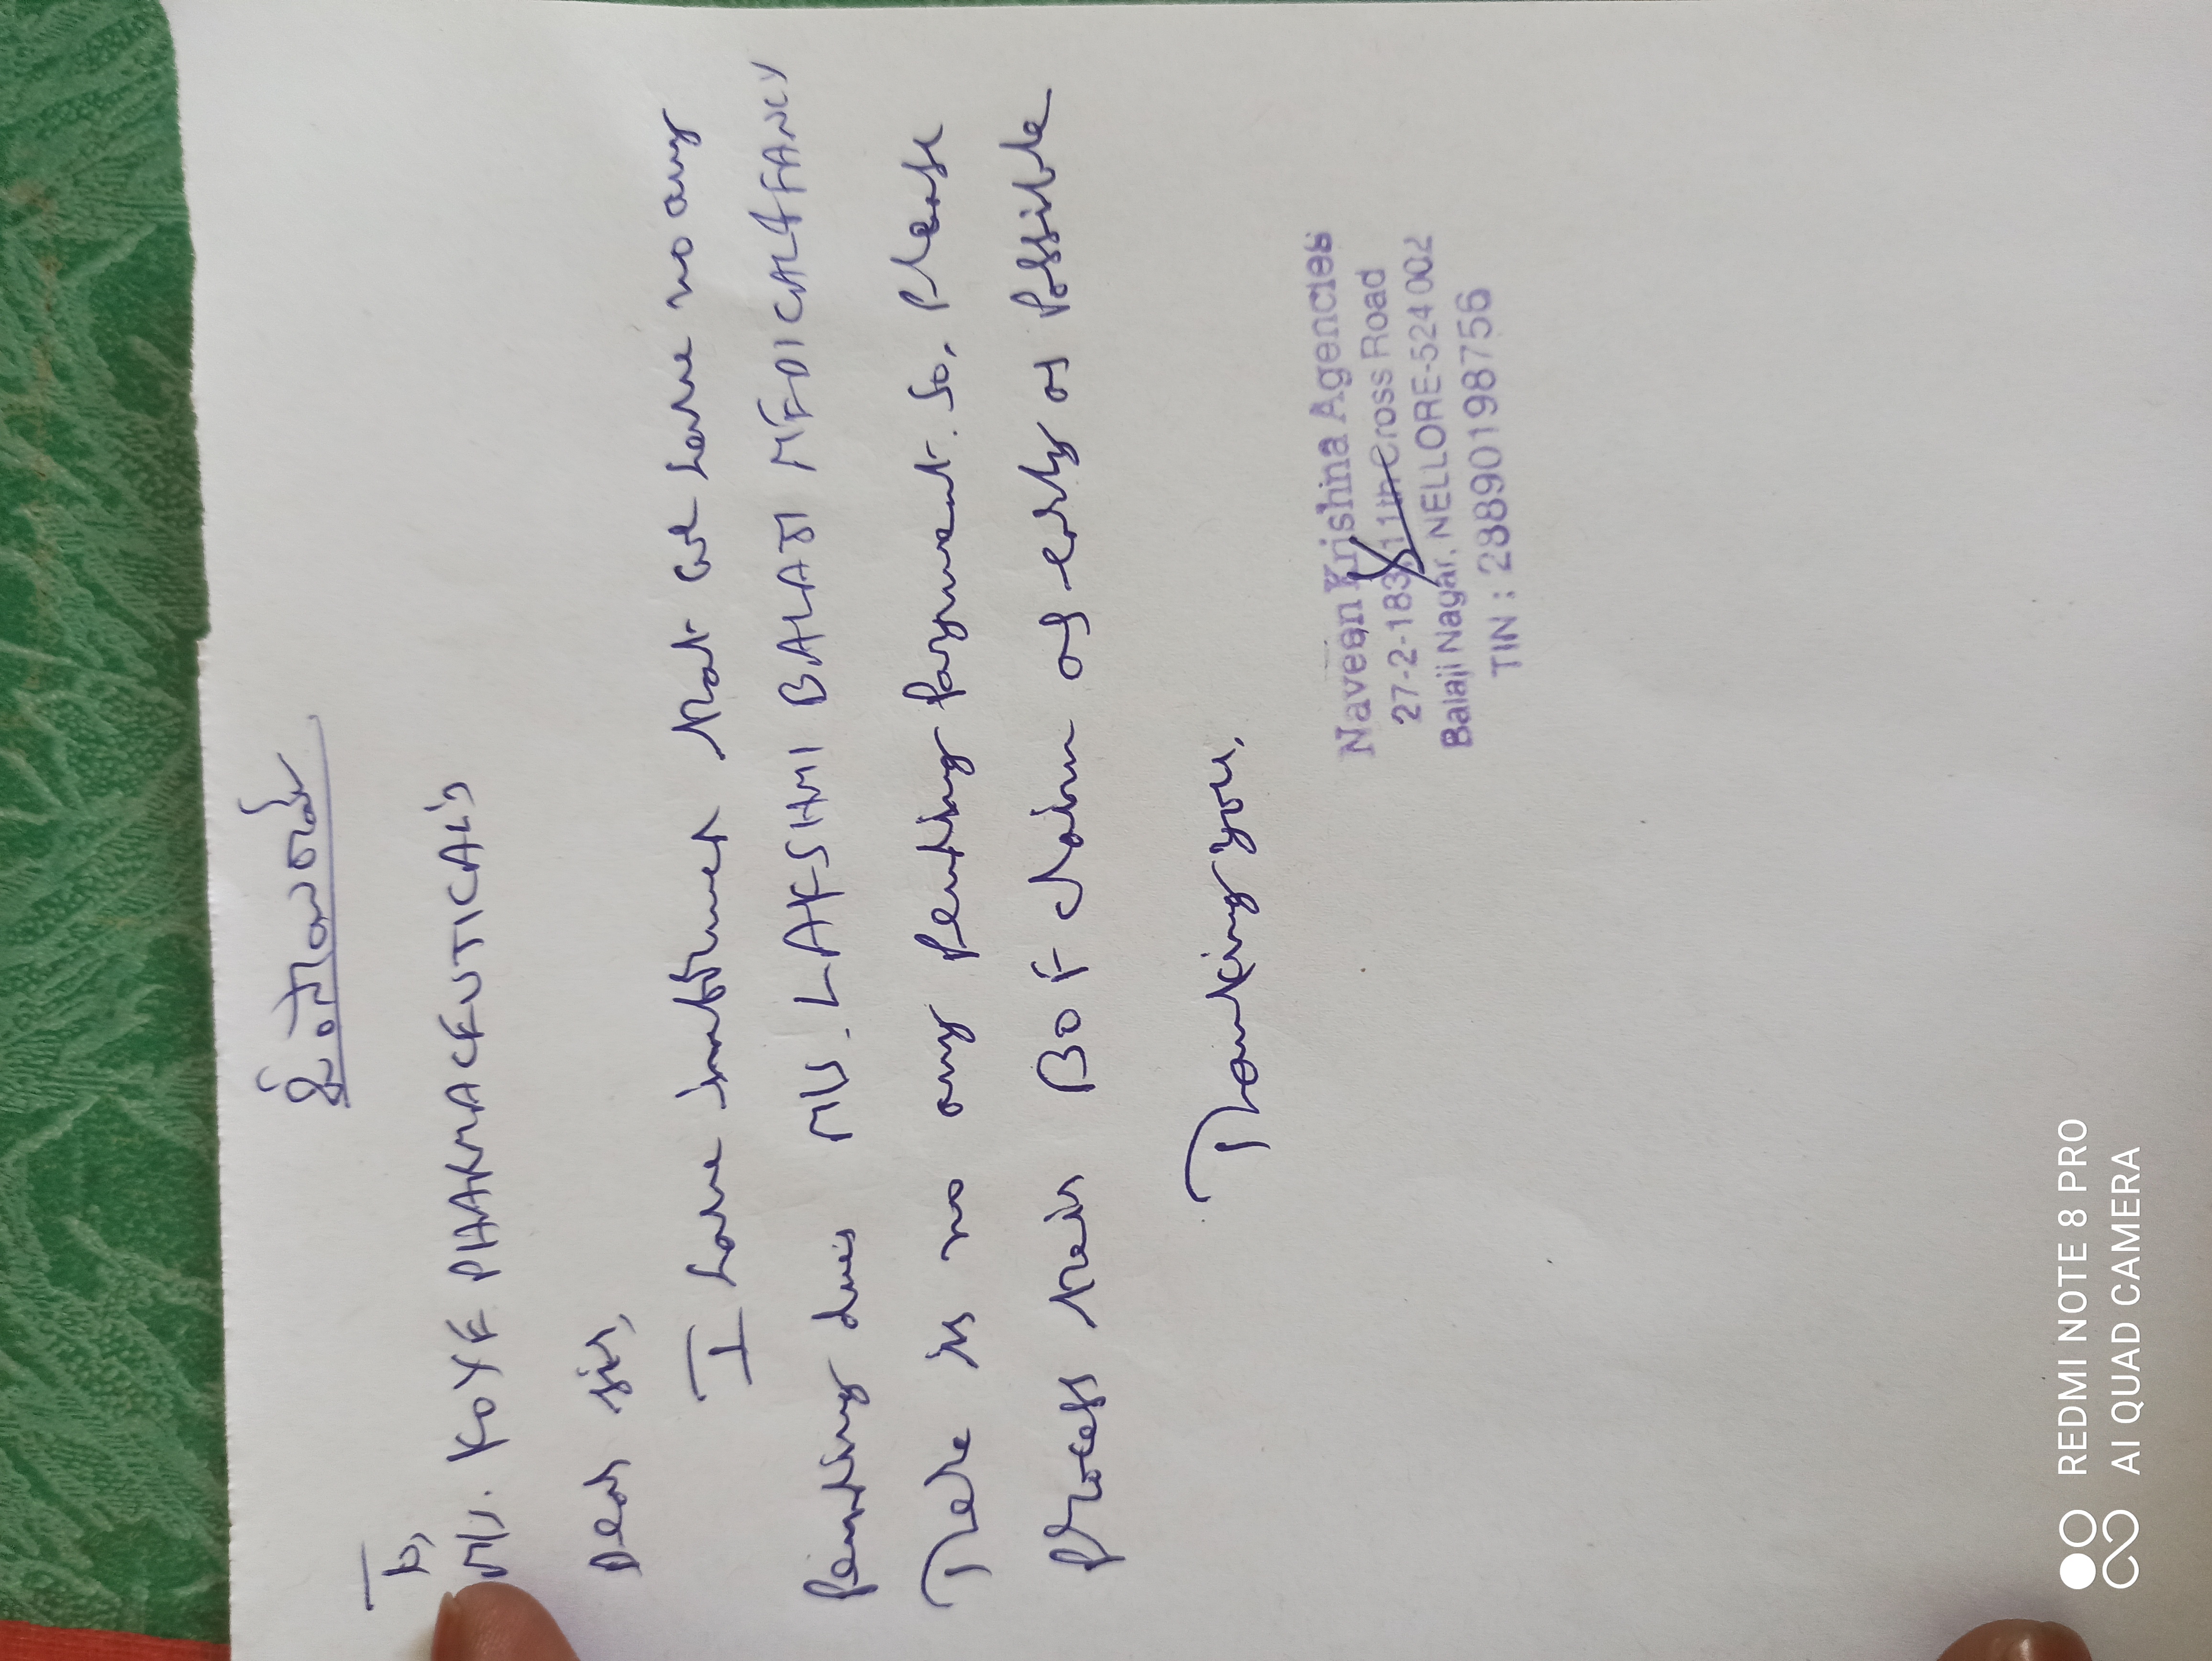 To,
M/s. KOYE PHARMACEUTICAL'S
Dear sir,
I have that we have no any
pending dues M/s. LAKSHMI BALAJI MEDICAL & FANCY
There is no any pending payment. So, please
process their BOF claim as erly as possible
Thanking you,
Naveen Krishna Agencies
27-2-183, 11th Cross Road
Balaji Nagar, NELLORE-524 002
TIN : 28890198756
REDMI NOTE 8 PRO
AI QUAD CAMERA